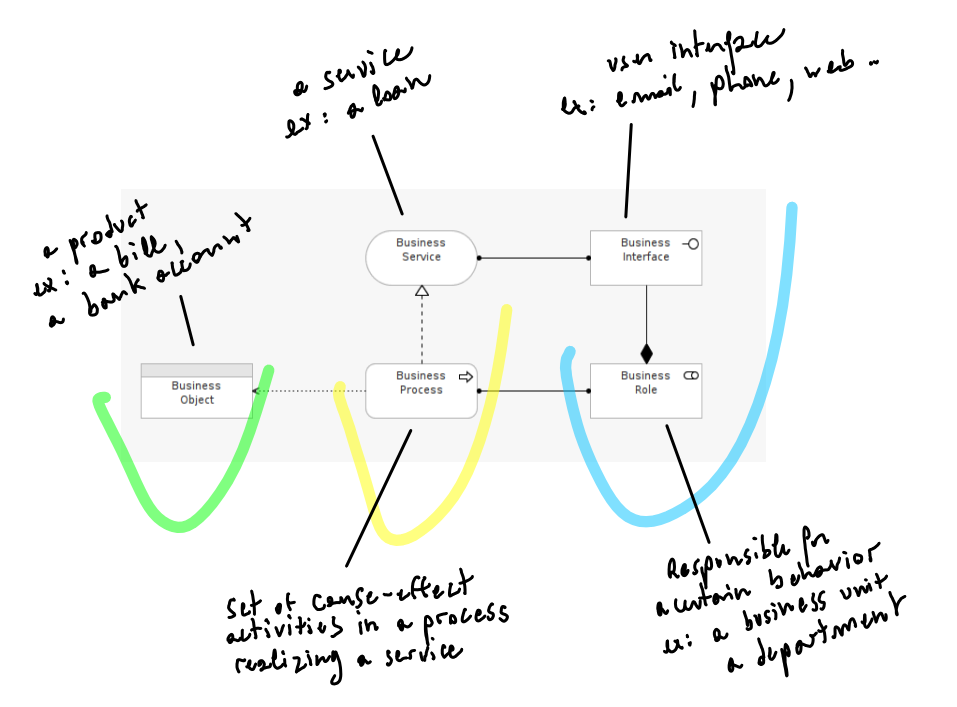 a service
ex: a loan
user interface
ex: email, phone, web ..
a product
ex: a bill,
a bank account
Business
Service
Business
Interface
Business
Object
Business
Process
Business
Role
set of cause-effect
activities in a process
realizing a service
Responsible for
a certain behavior
ex: a business unit
a department